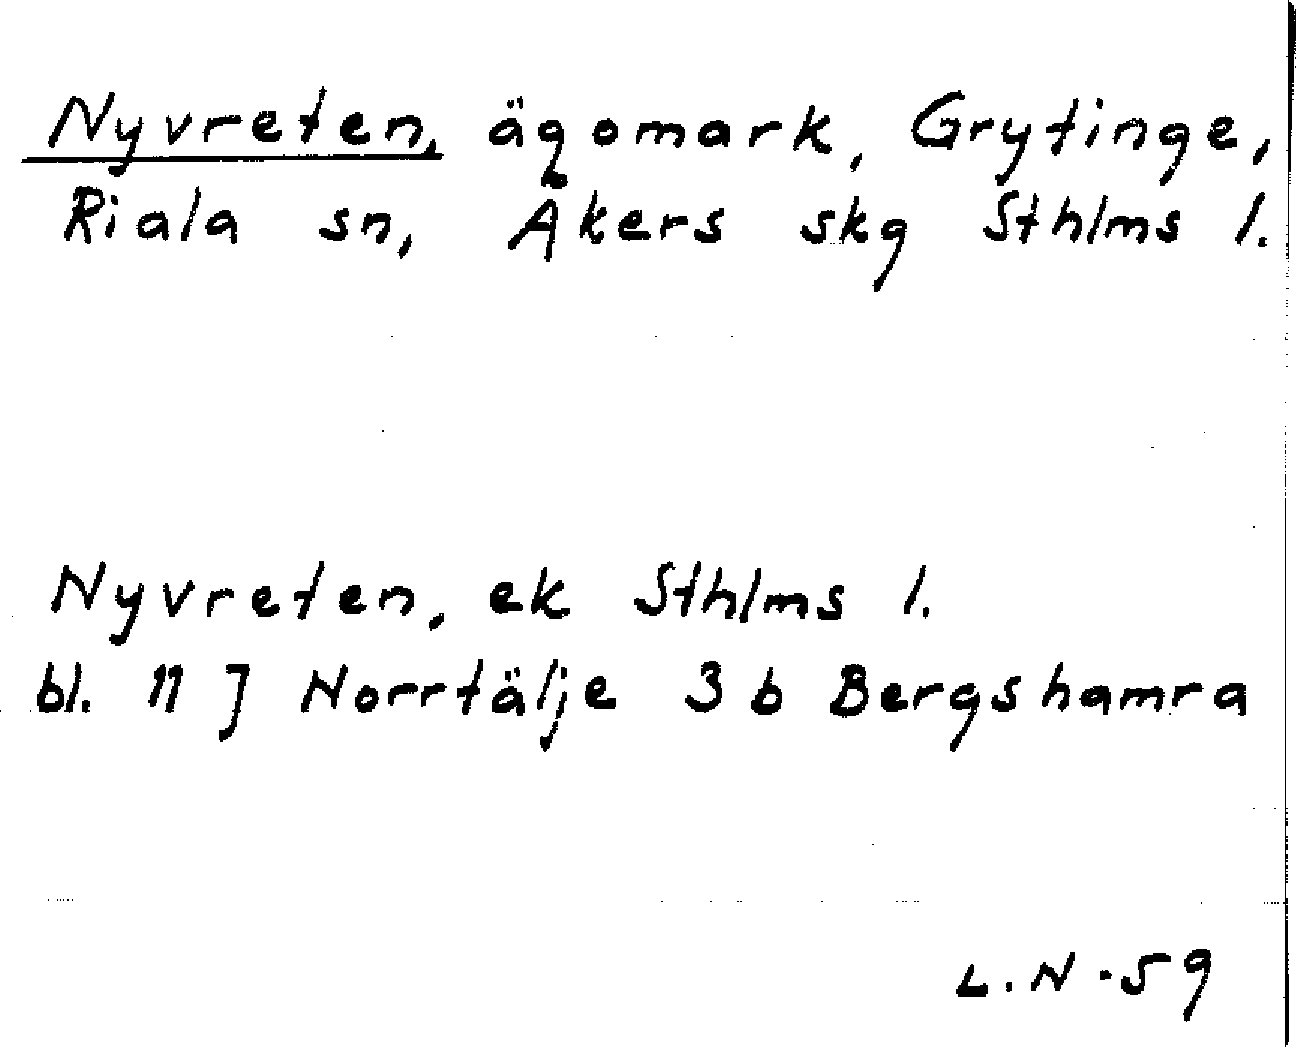 Nyvreten, ägomark, Grytinge,
Riala sn, Åkers skg Sthlms l.
Nyvreten, ek Sthlms l.
bl. 11 J Norrtälje 3 b Bergshamra
L.N-59